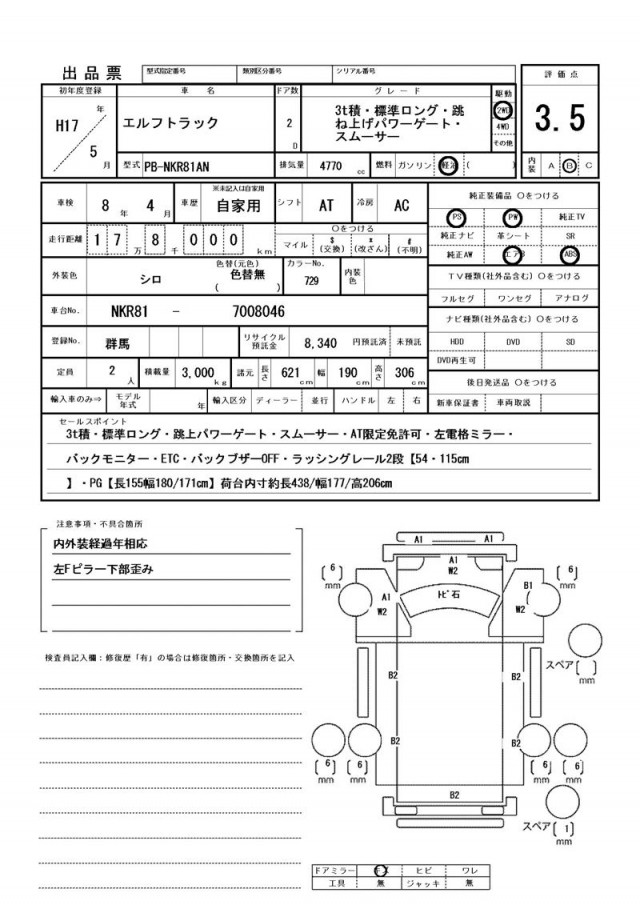 出品票 型式指定番号 類別区分番号 シリアル番号 評価点
初年度登録 車名 ドア数 グレード 駆動
H17 年 5 月 エルフトラック 2 D 3t積・標準ロング・跳 2WD 3.5
ね上げパワーゲート・ 4WD
スムーサー その他
型式 PB-NKR81AN 排気量 4770 cc 燃料 ガソリン 軽油 ( ) 内装 A B C
車検 8 年 4 月 車歴 ※未記入は自家用 自家用 シフト AT 冷房 AC 純正装備品 ○をつける
走行距離 1 7 万 8 千 0 0 0 km ○をつける マイル $ (交換) * (改ざん) # (不明) PS PW 純正TV
純正ナビ 革シート SR
外装色 シロ 色替(元色) 色替無 ( ) カラーNo. 729 内装色 純正AW エアB ABS
TV種類(社外品含む) ○をつける
フルセグ ワンセグ アナログ
車台No. NKR81 - 7008046 ナビ種類(社外品含む) ○をつける
登録No. 群馬 リサイクル預託金 8,340 円預託済 未預託 HDD DVD SD
DVD再生可
定員 2 人 積載量 3,000 kg 諸元 長さ 621 cm 幅 190 cm 高さ 306 cm 後日発送品 ○をつける
輸入車のみ⇒ モデル年式 年 輸入区分 ディーラー 並行 ハンドル 左 右 新車保証書 車両取説
セールスポイント
3t積・標準ロング・跳上パワーゲート・スムーサー・AT限定免許可・左電格ミラー・
バックモニター・ETC・バックブザーOFF・ラッシングレール2段【54・115cm
】・PG【長155幅180/171cm】荷台内寸約長438/幅177/高206cm
注意事項・不具合箇所
内外装経過年相応
左Fピラー下部歪み
検査員記入欄：修復歴「有」の場合は修復箇所・交換箇所を記入
A1 A1
A1
W2
(6) mm (6) mm
A1 トビ石 B1
W2 W2
スペア( ) mm
B2 B2
B2 B2
(6) mm (6) mm (6) mm (6) mm
B2
スペア(1) mm
ドアミラー キズ ヒビ ワレ
工具 無 ジャッキ 無